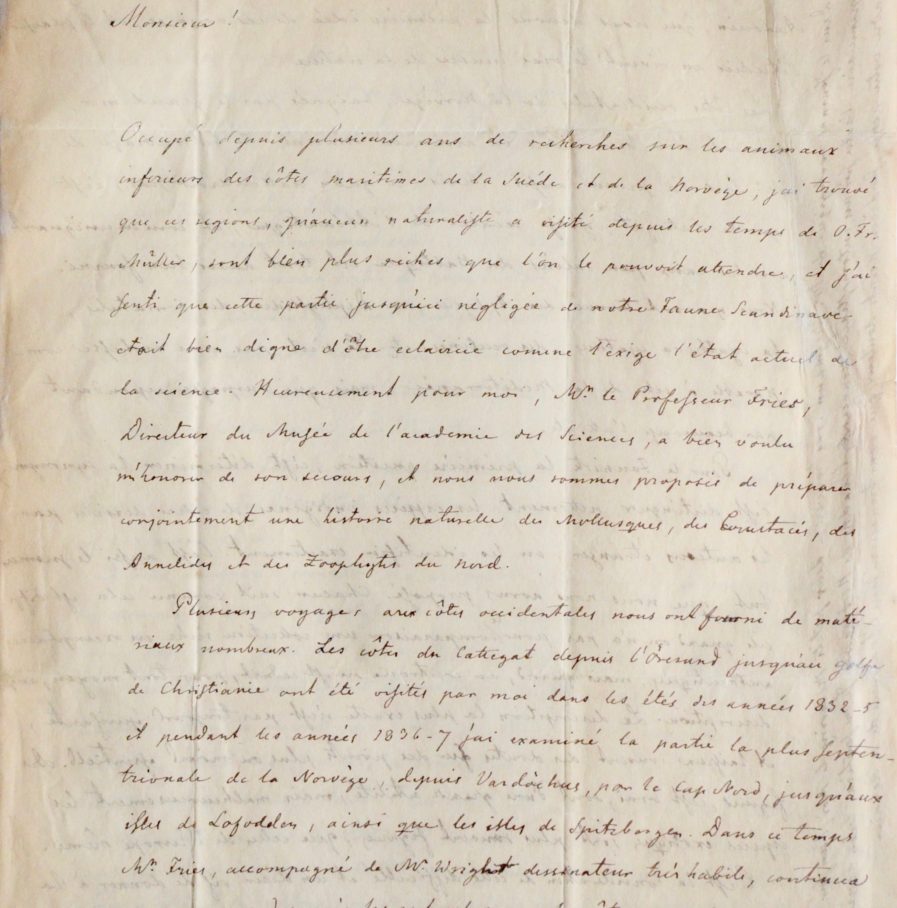 Monsieur !
Occupé depuis plusieurs ans de recherches sur les animaux
inferieurs des côtes maritimes de la Suéde et de la Norvège, j'ai trouvé
que ces regions, qu'aucun naturaliste a visité depuis les temps de O. Fr.
Müller, sont bien plus riches que l'on le pouvoit attendre, et j'ai
senti que cette partie jusqu'ici négligée de notre Faune Scandinave
etoit bien digne d'être eclaircie comme l'exige l'état actuel de
la science. Heureusement pour moi, Mr. le Professeur Fries,
Directeur du Musée de l'academie des Sciences, a bien voulu
m'honorer de son secours, et nous nous sommes proposés de préparer
conjointement une histoire naturelle des Mollusques, des Crustacés, des
Annelides et des Zoophytes du nord.
Plusieurs voyages aux côtes occidentales nous ont fourni de maté-
riaux nombreux. Les côtes du Cattegat depuis l'Öresund jusqu'au golfe
de Christianie ont été visités par moi dans les étés des années 1832-5
et pendant les années 1836-7 j'ai examiné la partie la plus septen-
trionale de la Norvège, depuis Vardöehus, par le Cap Nord, jusqu'aux
isles de Lofodden, ainsi que les isles de Spitzbergen. Dans ce temps
Mr. Fries, accompagné de Mr. Wright dessinateur très habile, continua